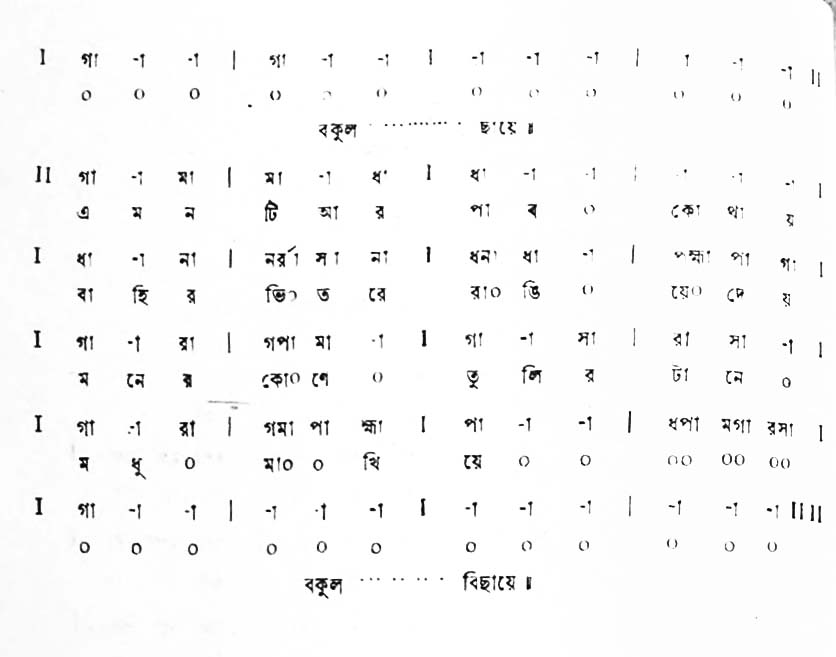 I গা -া -া | গা -া -া I -া -া -া | -া -া -া II
০ ০ ০ ০ ০ ০ ০ ০ ০ ০ ০ ০
বকুল ············ ছায়ে ॥
II গা -া মা | মা -া ধা I ধা -া -া | -া -া -া I
এ ম ন টি আ র পা ব ০ কো থা য়
I ধা -া না | নর্রা র্সা না I ধনা ধা -া | পহ্মা পা গা I
বা হি র ভি০ ত রে রা০ ঙি ০ য়ে০ দে য়
I গা -া রা | গপা মা -া I গা -া সা | রা সা -া I
ম নে র কো০ ণে ০ তু লি র টা নে ০
I গা -া রা | গমা পা হ্মা I পা -া -া | ধপা মগা রসা I
ম ধু ০ মা০ ০ খি য়ে ০ ০ ০০ ০০ ০০
I গা -া -া | -া -া -া I -া -া -া | -া -া -া II II
০ ০ ০ ০ ০ ০ ০ ০ ০ ০ ০ ০
বকুল ··· ·· ·· · · বিছায়ে ॥